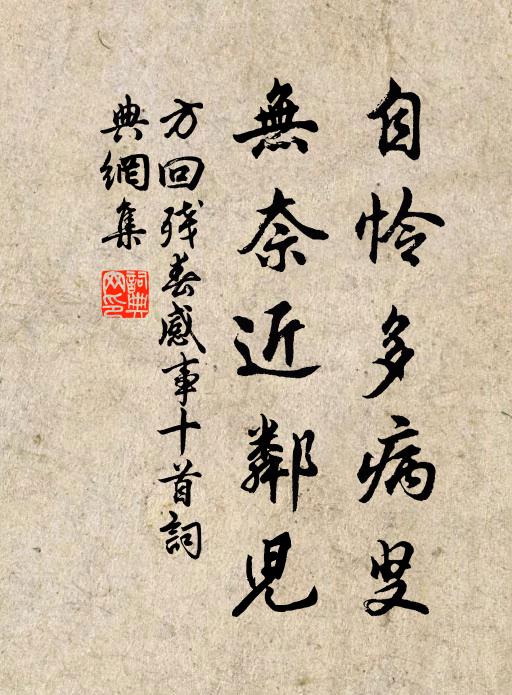 自怜多病叟
無奈近鄰児
方回残春感事十首詞
典網集
詞典
网印